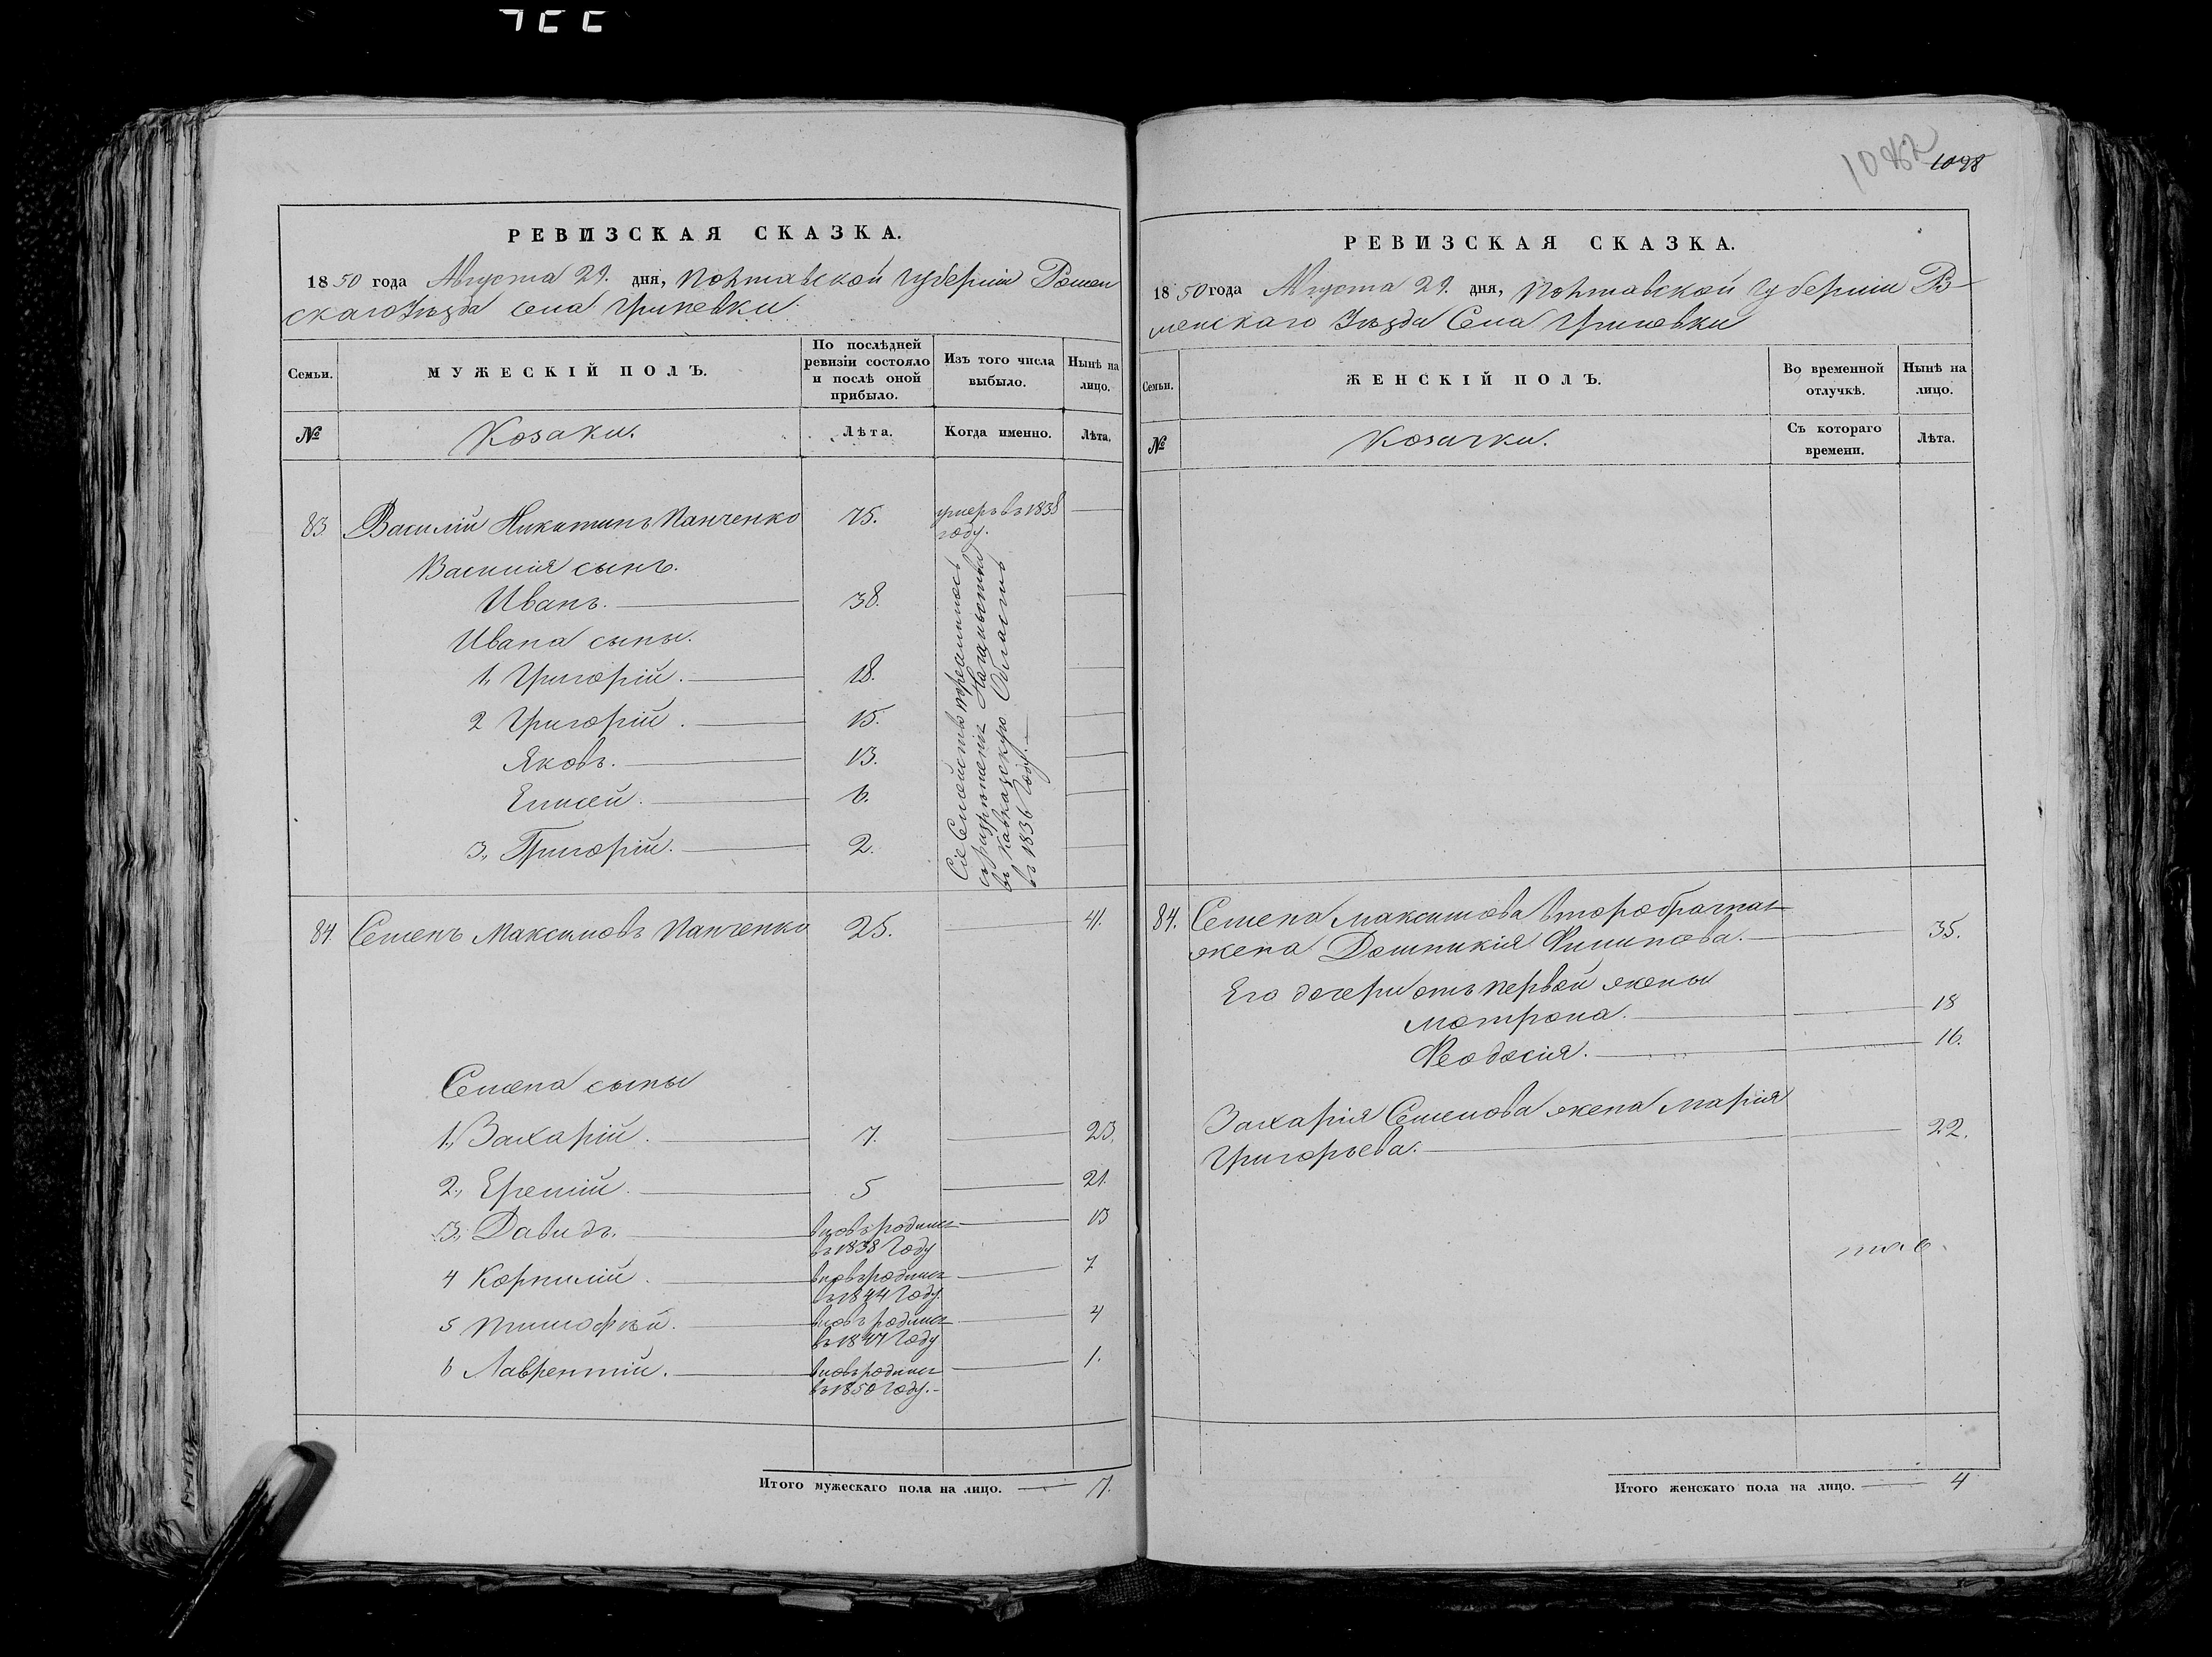 1082 1098
РЕВИЗСКАЯ СКАЗКА.
1850 года Августа 29. дня, Полтавской Губерніи Ромен
скаго Уѣзда села Грипевки
Семьи.
МУЖЕСКІЙ ПОЛЪ.
По послѣдней ревизіи состояло и послѣ оной прибыло.
Изъ того числа выбыло.
Нынѣ на лицо.
№
Козаки.
Лѣта.
Когда именно.
Лѣта.
83. Василій Никитинъ Панченко 75. умеръ въ 1838
году.
Василія сынъ.
Иванъ. 38.
Ивана сыны.
1, Григорій. 18.
2 Григорій. 15.
Яковъ. 13.
Елисей. 6.
3, Григорій. 2.
Сіе Семейство
съ разрѣшенія Начальства
въ Кавказскую Область
въ 1836 Году.
84. Семенъ Максимовъ Панченко 25. 41.
Семена сыны
1, Захарій. 7. 23.
2, Еремій. 5 21.
3, Давидъ. вновь родился 13
въ 1838 Году
4 Корнилій. вновь родился 7
въ 1844 Году.
5 Тимофѣй. вновь родился 4
въ 1847 Году
6 Лаврентій. вновь родился 1.
въ 1850 Году.
Итого мужескаго пола на лицо. 7.
РЕВИЗСКАЯ СКАЗКА.
1850 года Августа 29. дня, Полтавской Губерніи Р
менскаго Уѣзда Села Грипевки
Семьи.
ЖЕНСКІЙ ПОЛЪ.
Во временной отлучкѣ.
Нынѣ на лицо.
№
Козачки.
Съ котораго времени.
Лѣта.
84. Семена Максимова второбрачная
жена Домникія Филипова. 35.
Его дочери отъ первой жены
Матрона. 18
Феодосія. 16.
Захарія Семенова жена Марія
Григорьева. 22.
Итого женскаго пола на лицо. 4